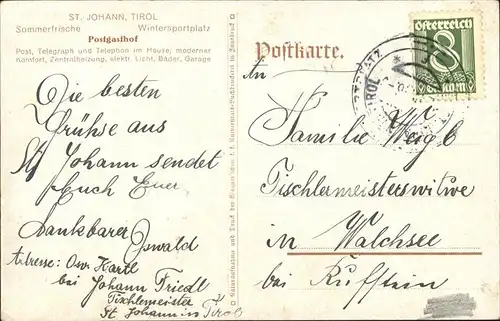 ST. JOHANN, TIROL
Sommerfrische Wintersportplatz
Postgasthof
Post, Telegraph und Telephon im Hause, moderner
Komfort, Zentralheizung, elektr. Licht, Bäder, Garage
Die besten
Grüße aus
St Johann sendet
Euch Euer
dankbarer
Oswald
Adresse: Osw. Kartl
bei Johann Friedl
Tischlemeister
St. Johann in Tirol
Postkarte.
An
Familie Weigl
Tischlermeisterswitwe
in Walchsee
bei Kufstein
Österreich
8
TIROL